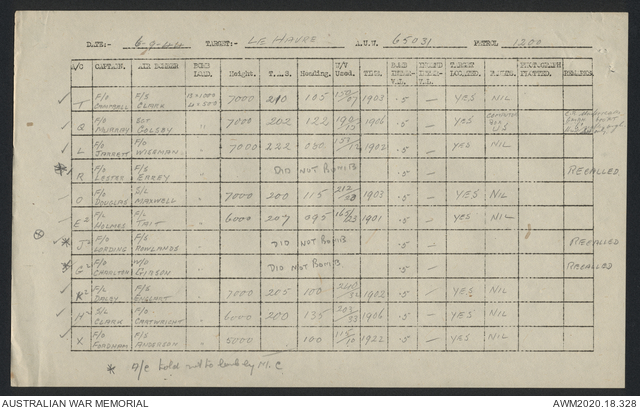 DATE:- 6-9-44 TARGET:- LE HAVRE A.U.W. 65031 PETROL 1200
A/C CAPTAIN. AIR BOMBER BOMB LOAD. Height. T.A.S. Heading. W/V Used. TIME. TARGET LOCATED. PHOTOGRAPH PLOTTED. REMARKS.
T F/O CAMPBELL F/S CLARK 7000 210 105 1903 .5 — YES NIL
Q F/O MURRAY SGT GOLSBY " 7000 202 122 1906 .5 — YES
L F/O JARRETT F/O WISEMAN " 7000 222 1902 .5 — YES NIL
* R F/O LESTER F/S ERREY " DID NOT BOMB .5 — RECALLED
O F/O DOUGLAS S/L MAXWELL " 7000 200 115 1903 .5 — YES NIL
E² F/L HOLMES F/L TAIT " 6000 207 095 1901 .5 — YES NIL
* J² F/O LORDING F/S ROWLANDS " DID NOT BOMB .5 — RECALLED
* G² F/O CHARLTON W/O GIBSON " DID NOT BOMB .5 — RECALLED
K² F/L DALBY F/S " 7000 205 100 1902 .5 — YES NIL
H² S/L CLARK F/O CARTWRIGHT " 6000 200 135 1906 .5 — YES NIL
X F/O FORDHAM F/S ANDERSON " 5000 100 1922 .5 — YES NIL
* A/C told not to bomb by M.C.
AUSTRALIAN WAR MEMORIAL AWM2020.18.328